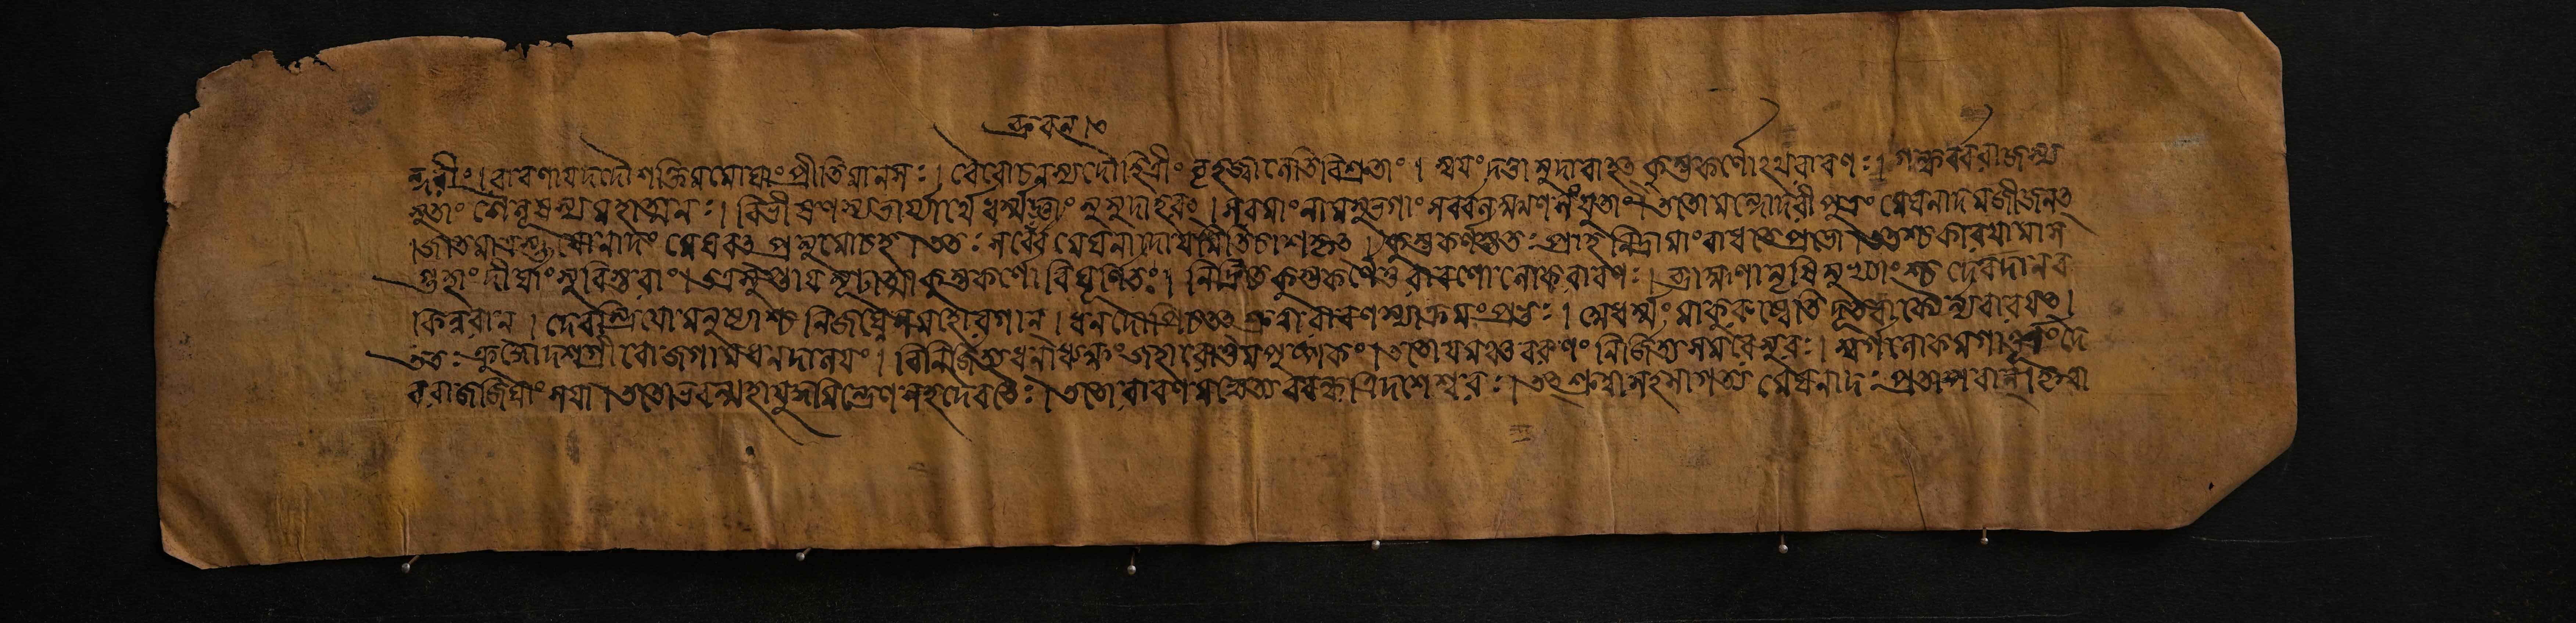 ন্দরীং। রাবণায দদৌ শক্তিমমোঘাং প্রীতিমানসঃ। বৈরোচনস্য দৌহিত্রীং বৃত্রজ্বালেতি বিশ্রুতাং। স্বযং দত্তামুদাবাহত্ কুম্ভকর্ণোঽথ রাবণঃ। গন্ধর্ব্বরাজস্য
সুতাং শৈলূষস্য মহাত্মনঃ। বিভীষণস্য ভার্য্যার্থে ধর্ম্মজ্ঞাং সমুদাহরৎ। সরমাং নাম সুভগাং সর্ব্বলক্ষণসংযুতাং। ততো মন্দোদরী পুত্রং মেঘনাদমজীজনৎ
। জাতমাত্রস্তু যো নাদং মেঘবৎ প্রমুমোচ হ। ততঃ সর্ব্বে মেঘনাদোযমিতি চাশকৃত। কুম্ভকর্ণস্ততঃ প্রাহ নিদ্রা মাং বাধতে প্রভো। ততশ্চ কারযামাস
গুহাং দীর্ঘাং সুবিস্তরাং। তত্র সুষ্বাপ মূঢাত্মা কুম্ভকর্ণো বিঘূর্ণিতঃ। নিদ্রিতে কুম্ভকর্ণে তু রাবণো লোকরাবণঃ। ব্রাহ্মণানৃষিমুখ্যাংশ্চ দেবদানব
কিন্নরান। দেবশ্রিযো মনুষ্যাংশ্চ নিজঘ্নে সমহোরগান। ধনদোপি ততঃ শ্রুত্বা রাবণস্যাক্রমং প্রভুঃ। অধর্ম্মং মা কুরুষ্বেতি দূতবাক্যৈর্ন্যবারযৎ।
ততঃ ক্রুদ্ধো দশগ্রীবো জগাম ধনদালযং। বিনির্জিত্য ধনাধ্যক্ষং জহারোত্তমপুষ্পকং। ততো যমঞ্চ বরুণং নির্জিত্য সমরেসুরঃ। স্বর্গলোকমগাত্তূর্ণং দে
বরাজজিঘাংসযা। ততোভবন্মহাযুদ্ধমিন্দ্রেণ সহ দৈবতৈঃ। ততো রাবণমভ্যেত্য ববন্ধ ত্রিদশেশ্বরঃ। তৎ শ্রুত্বা সহসাগত্য মেঘনাদঃ প্রতাপবান। কৃত্বা